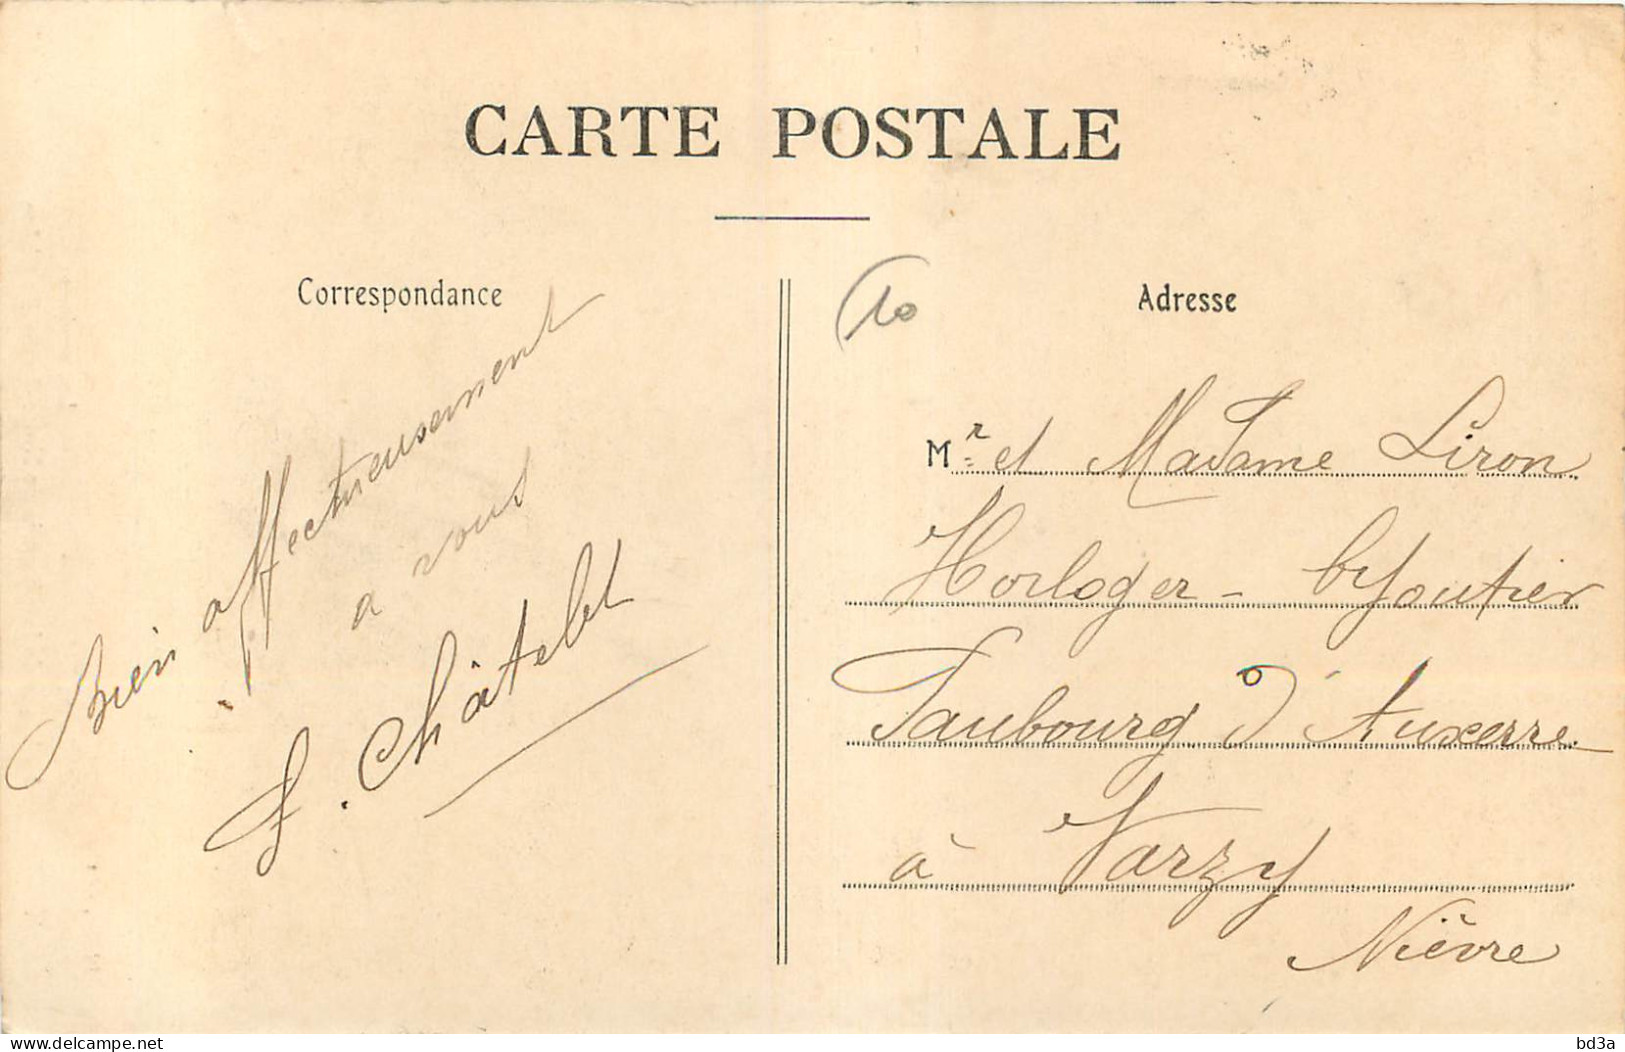 CARTE POSTALE
Correspondance
Bien affectueusement
a vous
F. Châtelet
10
Adresse
Mr et Madame Liron
Horloger - bijoutier
Faubourg d'Auxerre
à Varzy
Nièvre
delcampe.net
bd3a